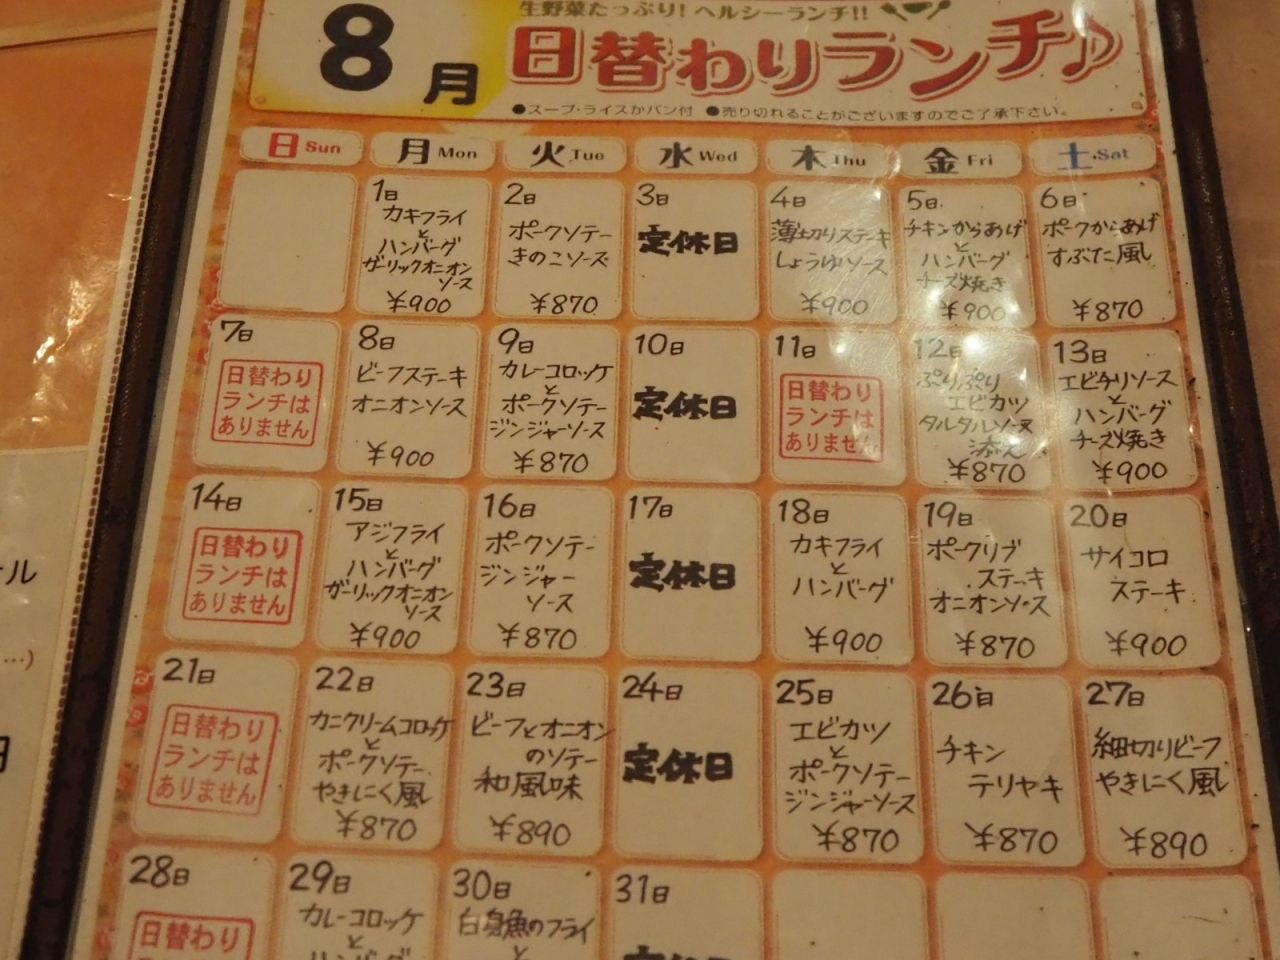 生野菜たっぷり!ヘルシーランチ!!
8月
日替わりランチ♪
●スープ・ライスかパン付 ●売り切れることがございますのでご了承下さい。
日 Sun 月 Mon 火 Tue 水 Wed 木 Thu 金 Fri 土 Sat
1日
カキフライ
と
ハンバーグ
ガーリックオニオン
ソース
¥900
2日
ポークソテー
きのこソース
¥870
3日
定休日
4日
薄切りステーキ
しょうゆソース
¥900
5日
チキンからあげ
と
ハンバーグ
チーズ焼き
¥900
6日
ポークからあげ
すぶた風
¥870
7日
日替わり
ランチは
ありません
8日
ビーフステーキ
オニオンソース
¥900
9日
カレーコロッケ
と
ポークソテー
ジンジャーソース
¥870
10日
定休日
11日
日替わり
ランチは
ありません
12日
ぷりぷり
エビカツ
タルタルソース
添え
¥870
13日
エビチリソース
と
ハンバーグ
チーズ焼き
¥900
14日
日替わり
ランチは
ありません
15日
アジフライ
と
ハンバーグ
ガーリックオニオン
ソース
¥900
16日
ポークソテー
ジンジャー
ソース
¥870
17日
定休日
18日
カキフライ
と
ハンバーグ
¥900
19日
ポークリブ
ステーキ
オニオンソース
¥870
20日
サイコロ
ステーキ
¥900
21日
日替わり
ランチは
ありません
22日
カニクリームコロッケ
と
ポークソテー
やきにく風
¥870
23日
ビーフとオニオン
のソテー
和風味
¥890
24日
定休日
25日
エビカツ
と
ポークソテー
ジンジャーソース
¥870
26日
チキン
テリヤキ
¥870
27日
細切りビーフ
やきにく風
¥890
28日
日替わり
29日
カレーコロッケ
と
ハンバーグ
30日
白身魚のフライ
と
31日
定休日
ール
…)